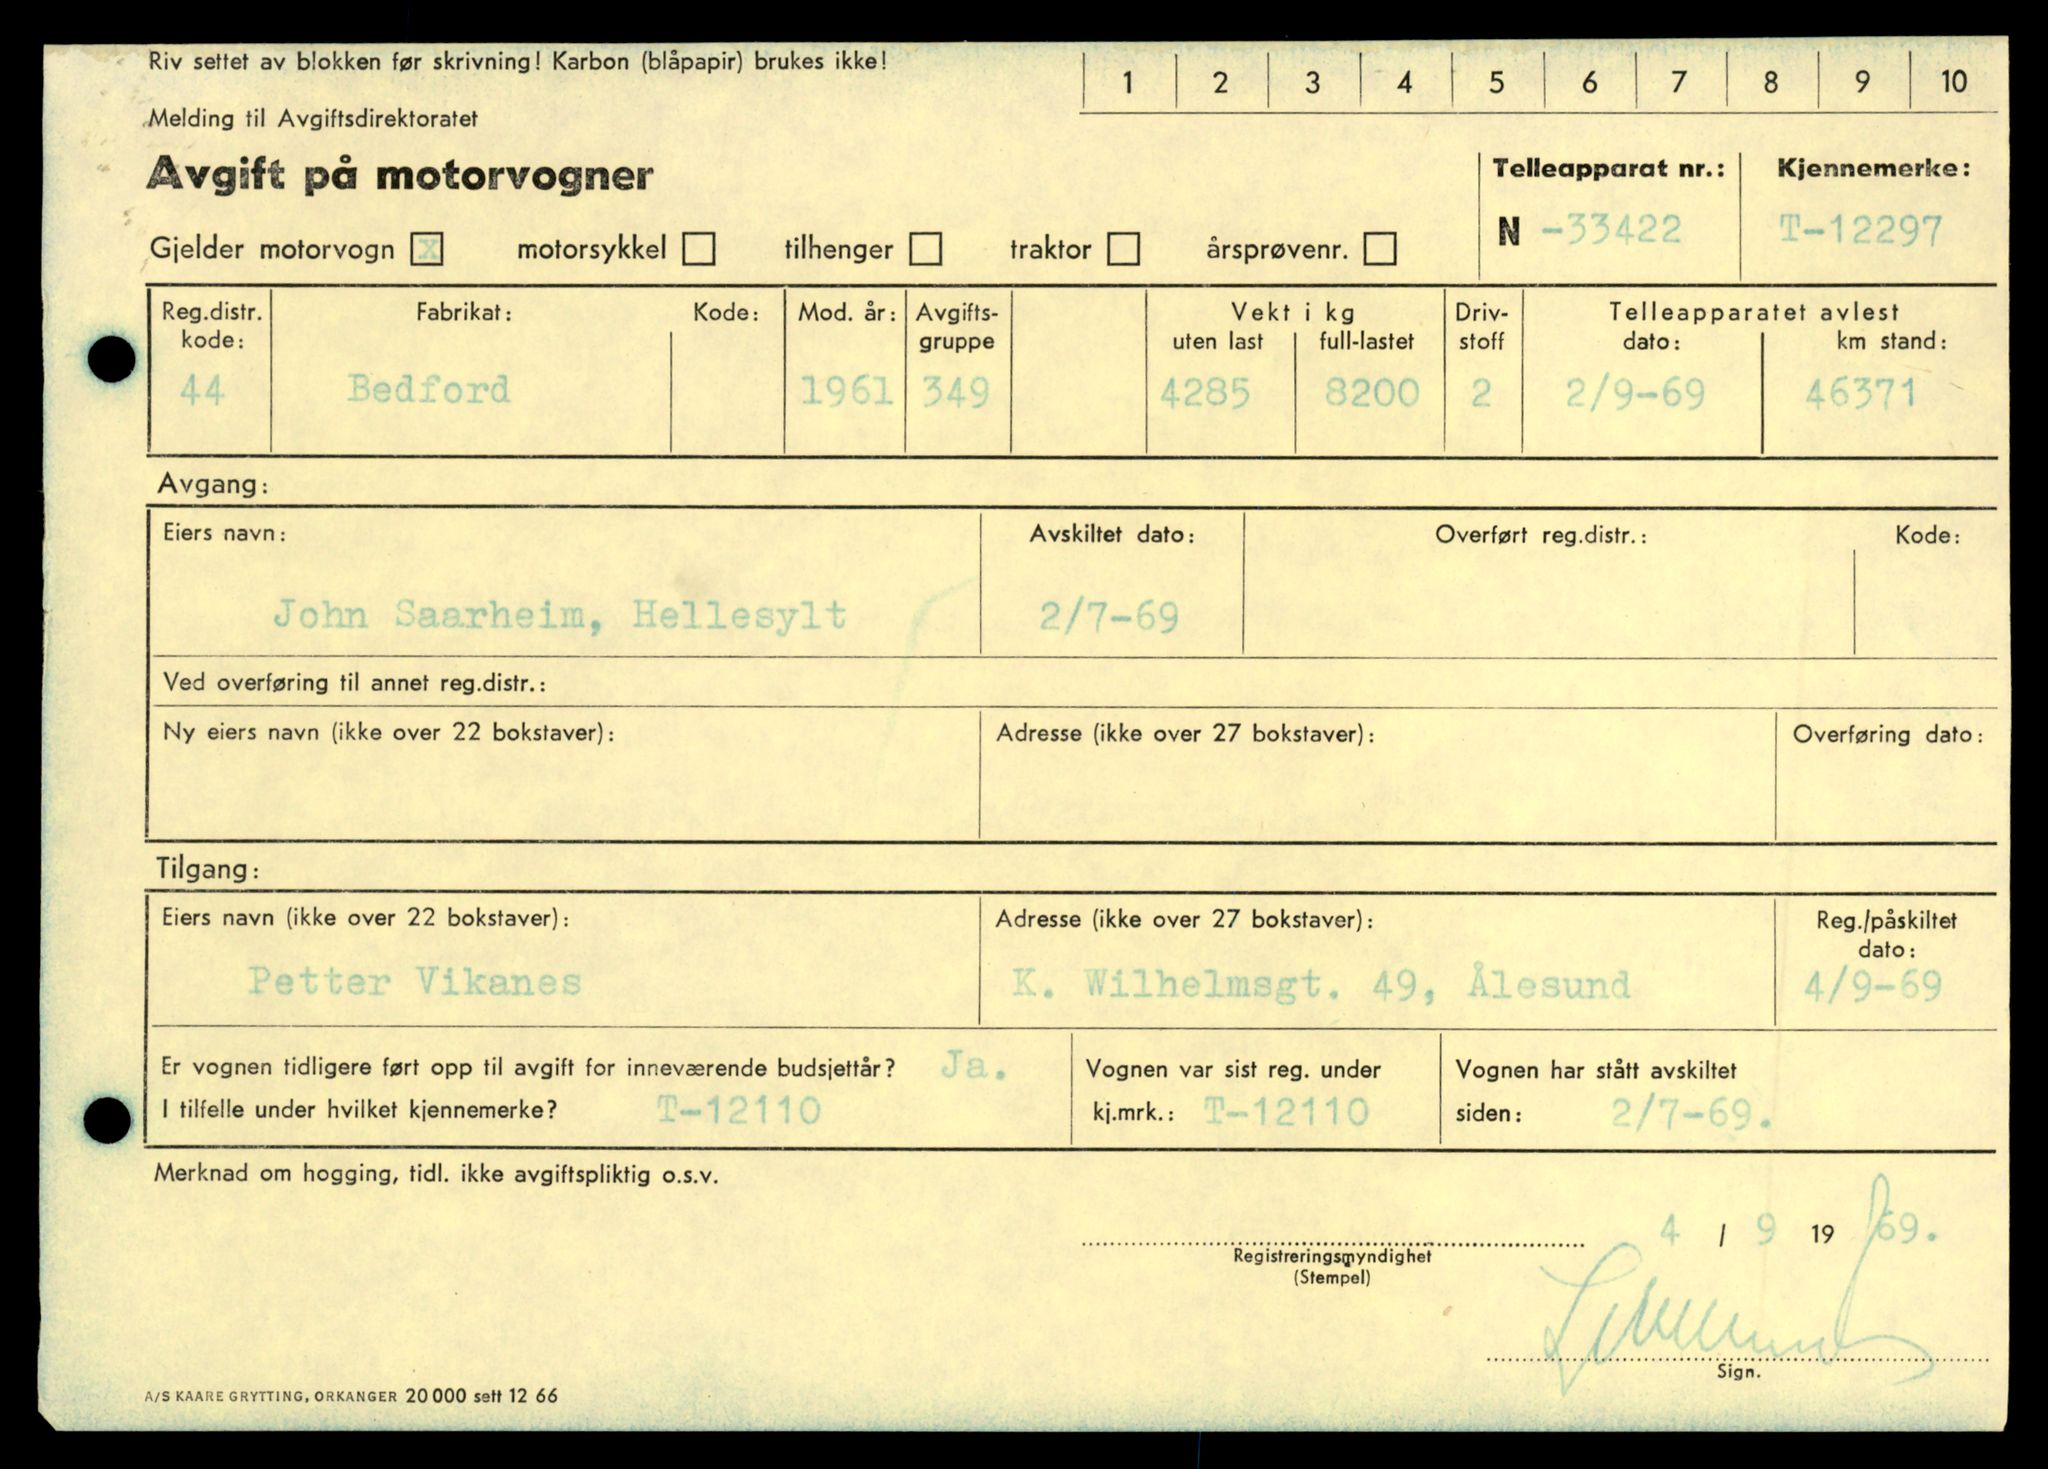 Riv settet av blokken før skrivning! Karbon (blåpapir) brukes ikke!
1 2 3 4 5 6 7 8 9 10
Melding til Avgiftsdirektoratet
Avgift på motorvogner
Telleapparat nr.: Kjennemerke:
N -33422 T-12297
Gjelder motorvogn X motorsykkel tilhenger traktor årsprøvenr.
Reg.distr. kode: Fabrikat: Kode: Mod. år: Avgifts-gruppe Vekt i kg uten last full-lastet Driv-stoff Telleapparatet avlest dato: km stand:
44 Bedford 1961 349 4285 8200 2 2/9-69 46371
Avgang:
Eiers navn: Avskiltet dato: Overført reg.distr.: Kode:
John Saarheim, Hellesylt 2/7-69
Ved overføring til annet reg.distr.:
Ny eiers navn (ikke over 22 bokstaver): Adresse (ikke over 27 bokstaver): Overføring dato:
Tilgang:
Eiers navn (ikke over 22 bokstaver): Adresse (ikke over 27 bokstaver): Reg./påskiltet dato:
Petter Vikanes K. Wilhelmsgt. 49, Ålesund 4/9-69
Er vognen tidligere ført opp til avgift for inneværende budsjettår? Ja. Vognen var sist reg. under Vognen har stått avskiltet
I tilfelle under hvilket kjennemerke? T-12110 kj.mrk.: T-12110 siden: 2/7-69.
Merknad om hogging, tidl. ikke avgiftspliktig o.s.v.
4 / 9 19 69.
Registreringsmyndighet
(Stempel)
Sign.
A/S KAARE GRYTTING, ORKANGER 20 000 sett 12 66